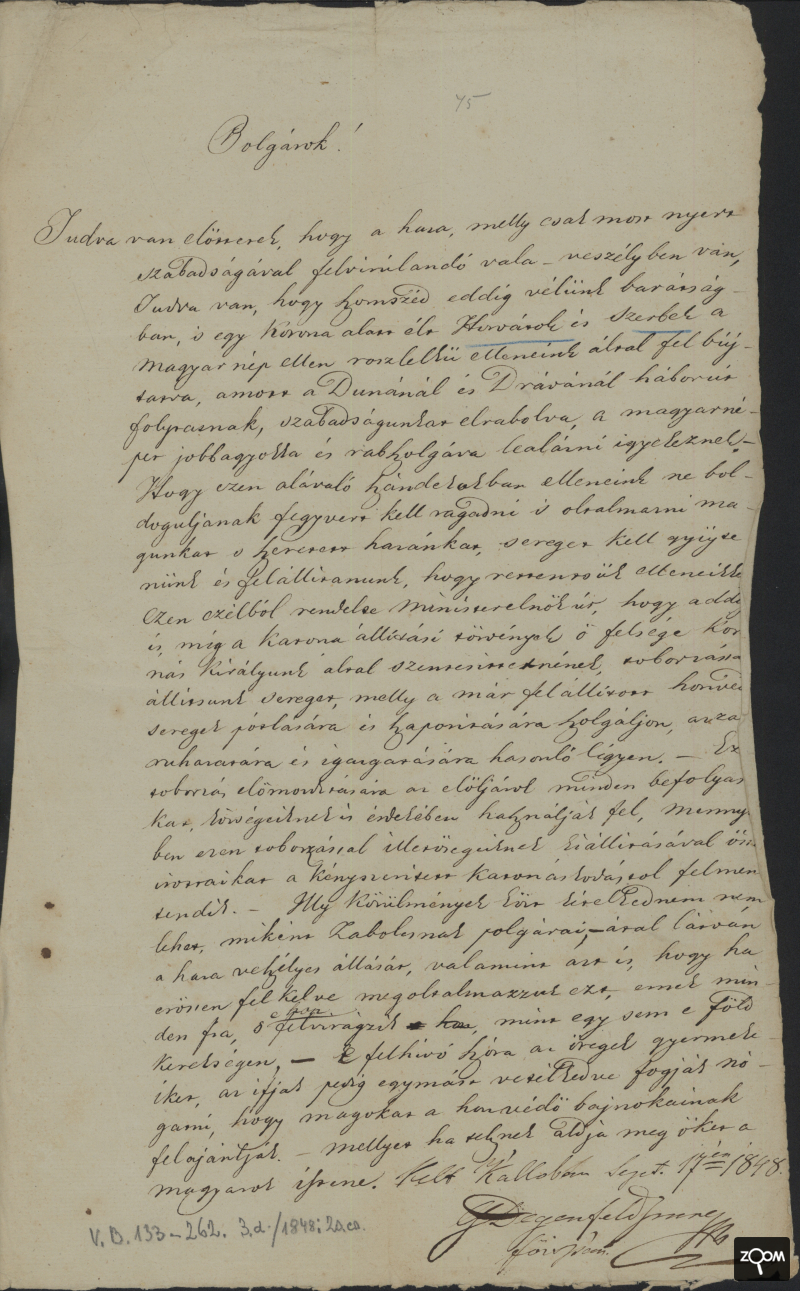 45
Polgárok!
Tudva van előttetek, hogy a haza, melly csak most nyert
szabadságával felvirúlandó vala – veszélyben van,
Tudva van, hogy homszéd eddig vélünk barátság-
ban, 's egy korona alatt élt Horvátok és Szerbek a
magyar nép ellen roszlelkű elleneink által fel búj-
tatva, amott a Dunánál és Drávánál háborút
folytatnak, szabadságunkat elrabolva, a magyar né-
pet jobbagyokká és rabszolgává lealázni igyekeznek. –
Hogy ezen alávaló szándékukban elleneink ne bol-
doguljanak fegyvert kell ragadni 's oltalmazni ma-
gunkat 's szeretett hazánkat, sereget kell gyűjte
nünk és felállitanunk, hogy rettentsük elleneinke
Ezen czélból rendelte Ministerelnök úr, hogy addi
is, míg a katona állitási törvények ő felsége koro
nás királyunk által szentesittetnének, toborzássa
állitsunk sereget, melly a már felállitott honvéd
seregek pótlására és szaporitására szolgáljon, azza
ruházatára és igazgatására hasonló légyen. – Ez
toborzás előmozditására az előljárok minden befolyás
kat, községeiknek is érdekében használják fel, menny
ben ezen toborzással illetőségeiknek kiállitásával
a kényszeritett katonáskodástol felmen
tendik. – Illy körülmények közt kételkednem nem
lehet, miként Zabolcsnak polgárai, – által látván
a haza veszélyes állását, valamint azt is, hogy ha
erősen fel kelve megoltalmazzuk ezt, ennek min-
den fia, 's e hon felvirágzik, mint egy sem e föld
kerekségen, – E felhivó szóra az öregek gyermeke-
iket, az ifjak pedig egymást vetélkedve fogják nó-
gatni, hogy magokat a hon védő bajnokainak
felajánlják. – mellyet ha tesznek áldja meg őket a
magyarok istene. Kelt Kállóban Sept. 17én 1848.
G Degenfeld Imre
főispán
V. B. 133–262. 3.d./1848: 20.ca.
ZOOM